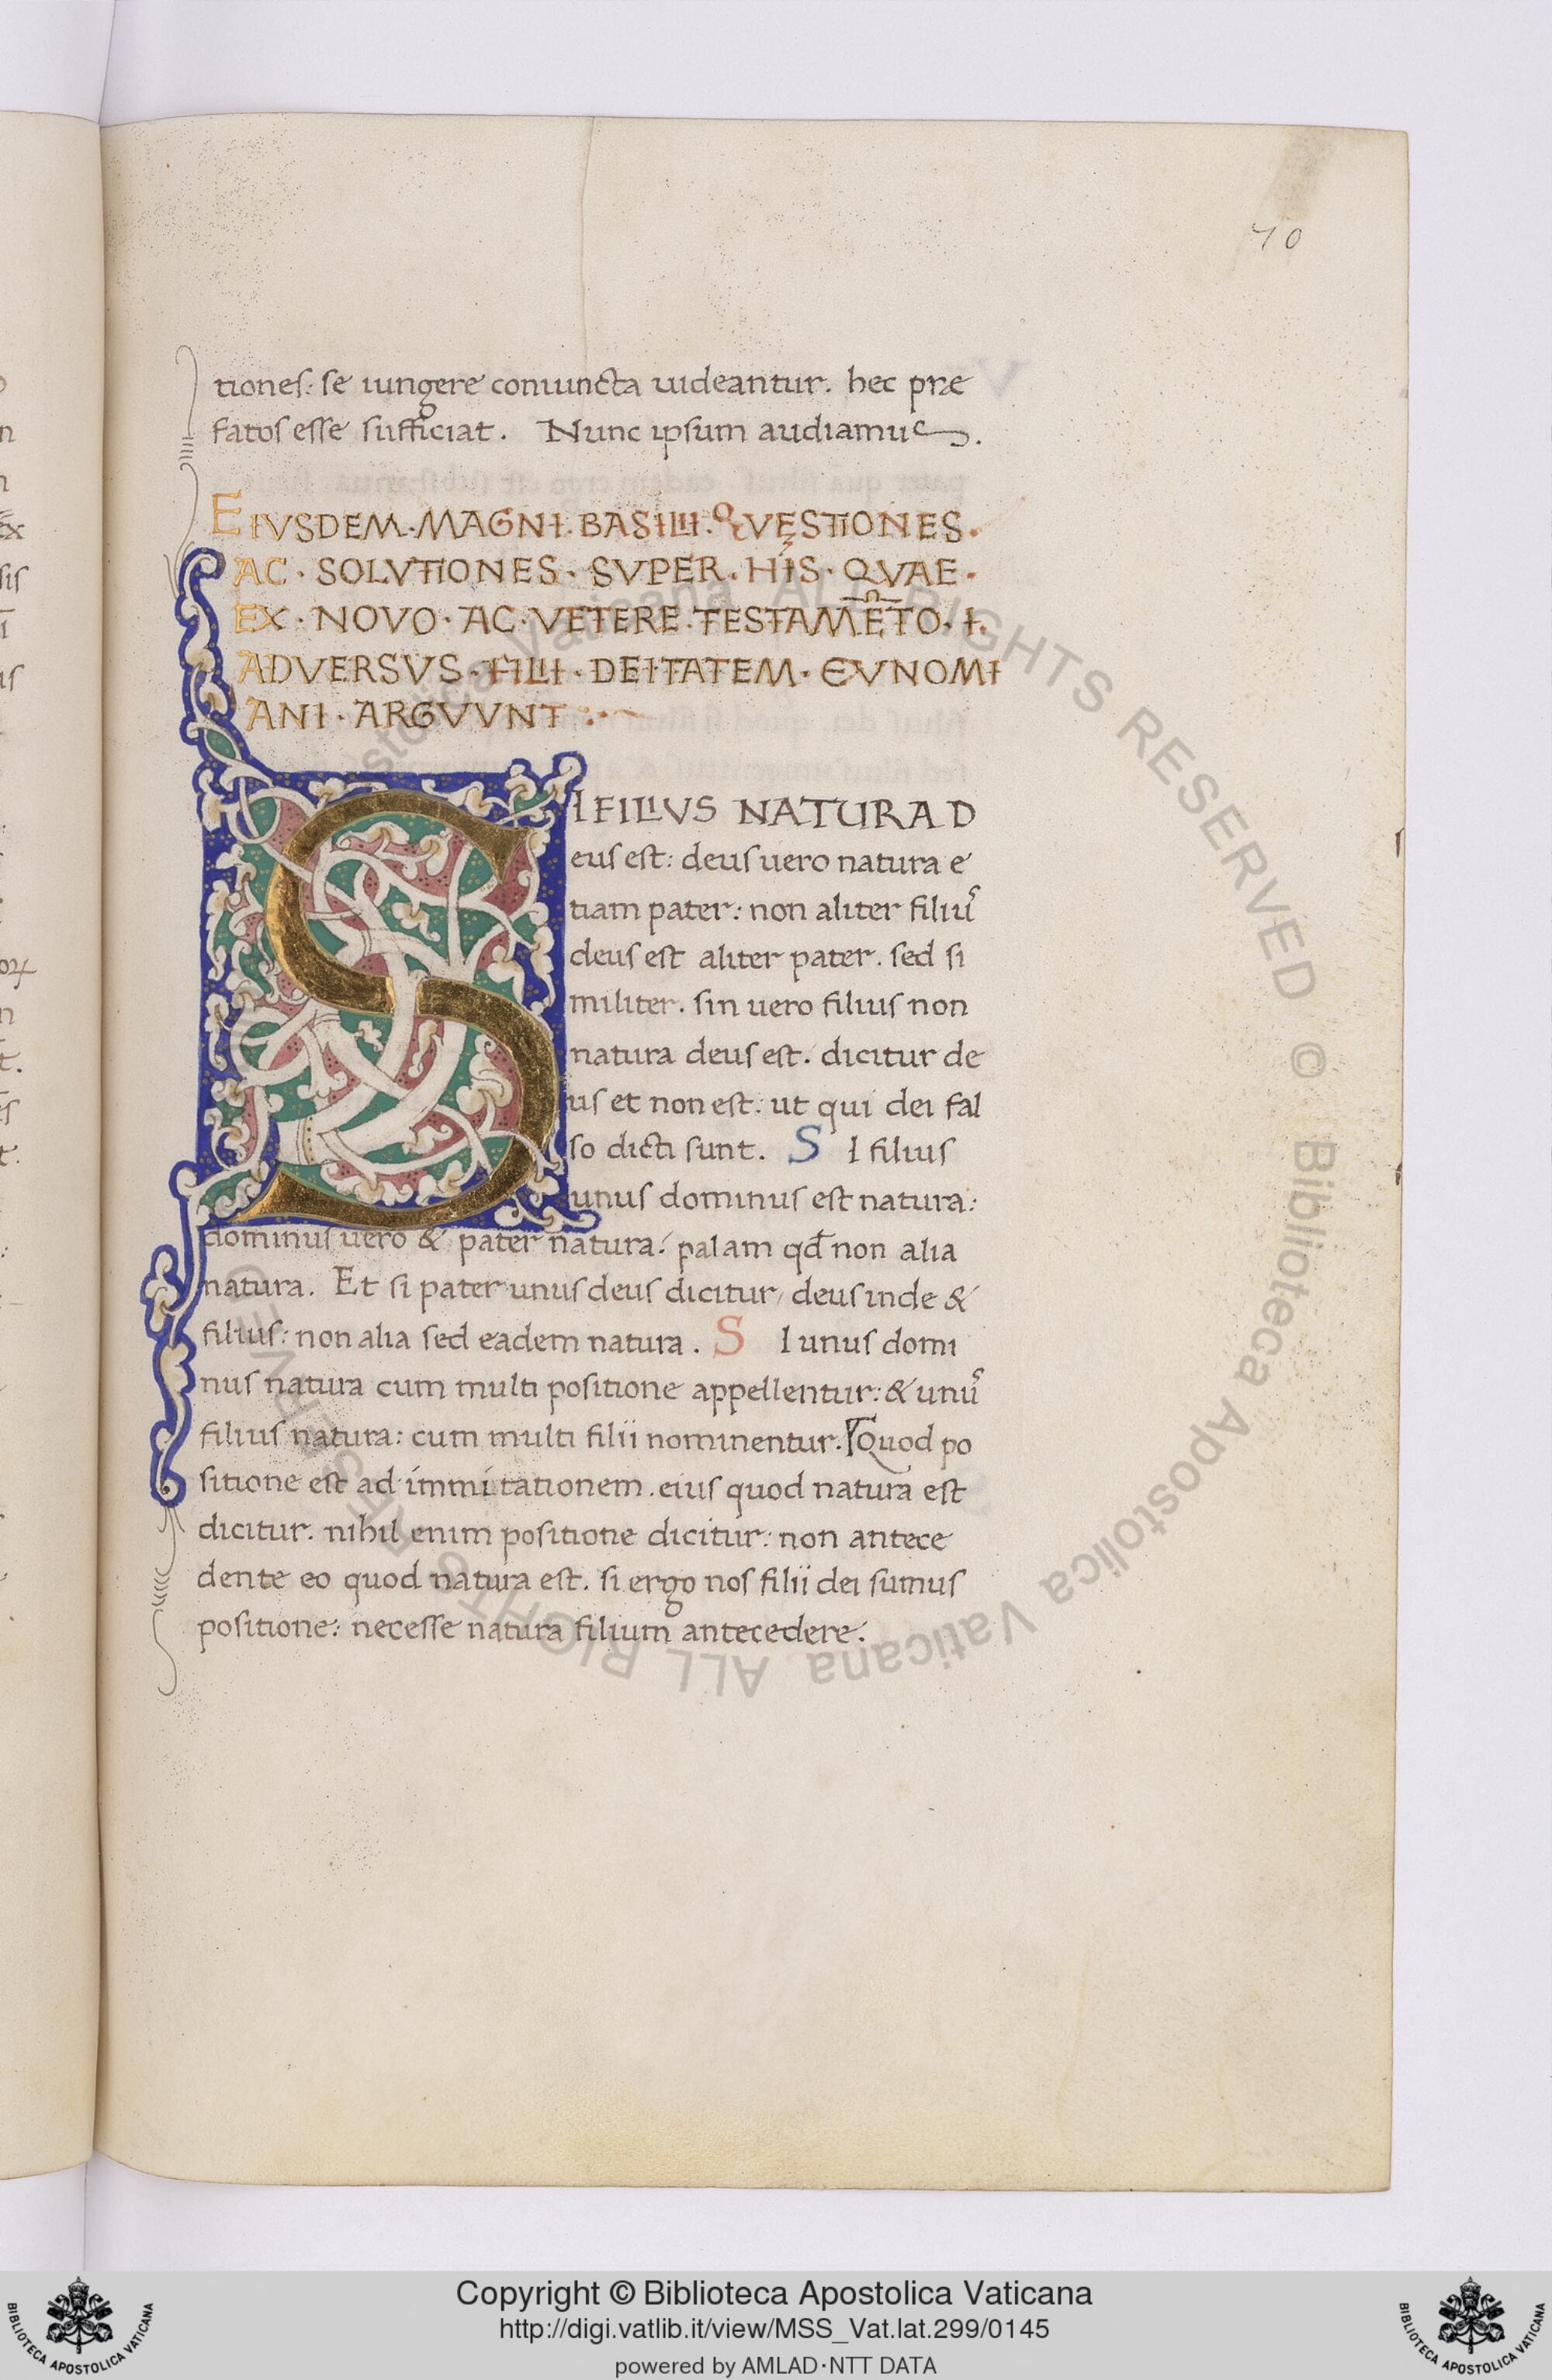 70
tiones: se iungere coniuncta uideantur. hec præ
fatos esse sufficiat. Nunc ipsum audiamus.
EIVSDEM·MAGNI·BASILII·QVĘSTIONES·
AC·SOLVTIONES·SVPER·HIS·QVAE·
EX·NOVO·AC·VETERE·TESTAMĒTO·I·
ADVERSVS·FILII·DEITATEM·EVNOMI
ANI·ARGVVNT
SI FILIVS NATURA D
eus est: deus uero natura e
tiam pater: non aliter filiuˢ
deus est aliter pater. sed si
militer. sin uero filius non
natura deus est. dicitur de
us et non est: ut qui dei fal
so dicti sunt. S I filius
unus dominus est natura:
dominus uero & pater natura: palam qđ non alia
natura. Et si pater unus deus dicitur, deus inde &
filius: non alia sed eadem natura. S I unus domi
nus natura cum multi positione appellentur: & unuˢ
filius natura: cum multi filii nominentur. Quod po
sitione est ad immitationem. eius quod natura est
dicitur. nihil enim positione dicitur: non antece
dente eo quod natura est. si ergo nos filii dei sumus
positione: necesse natura filium antecedere.
Copyright © Biblioteca Apostolica Vaticana
http://digi.vatlib.it/view/MSS_Vat.lat.299/0145
powered by AMLAD·NTT DATA
BIBLIOTECA APOSTOLICA VATICANA
BIBLIOTECA APOSTOLICA VATICANA
© Biblioteca Apostolica Vaticana ALL RIGHTS RESERVED